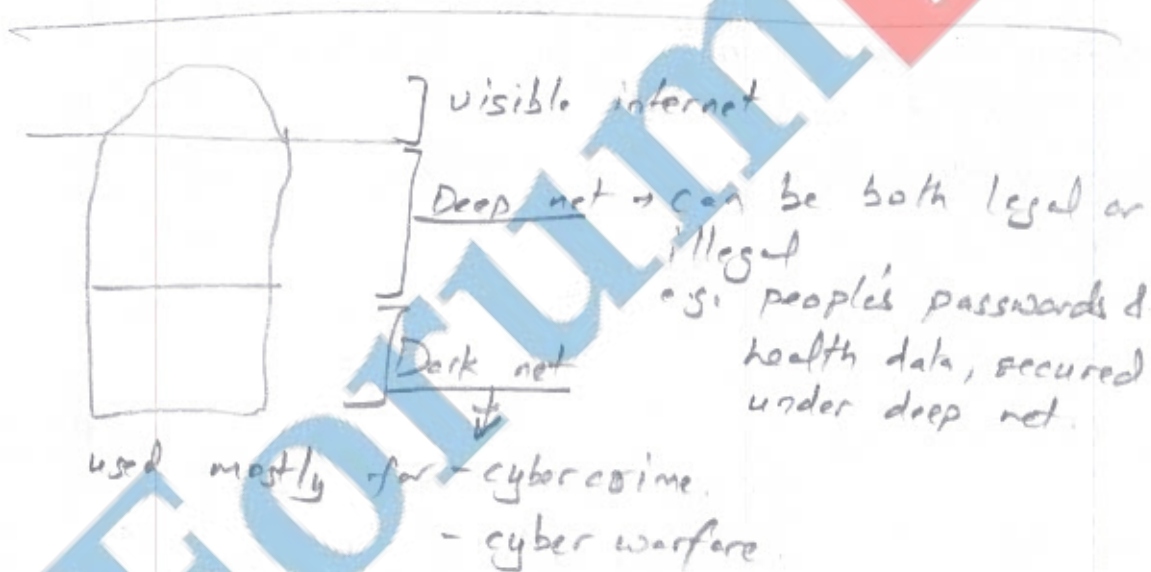 visible internet
Deep net → can be both legal or
illegal
e.g. people's passwords &
health data, secured
under deep net.
Dark net
used mostly for - cybercrime.
- cyber warfare.
Forum